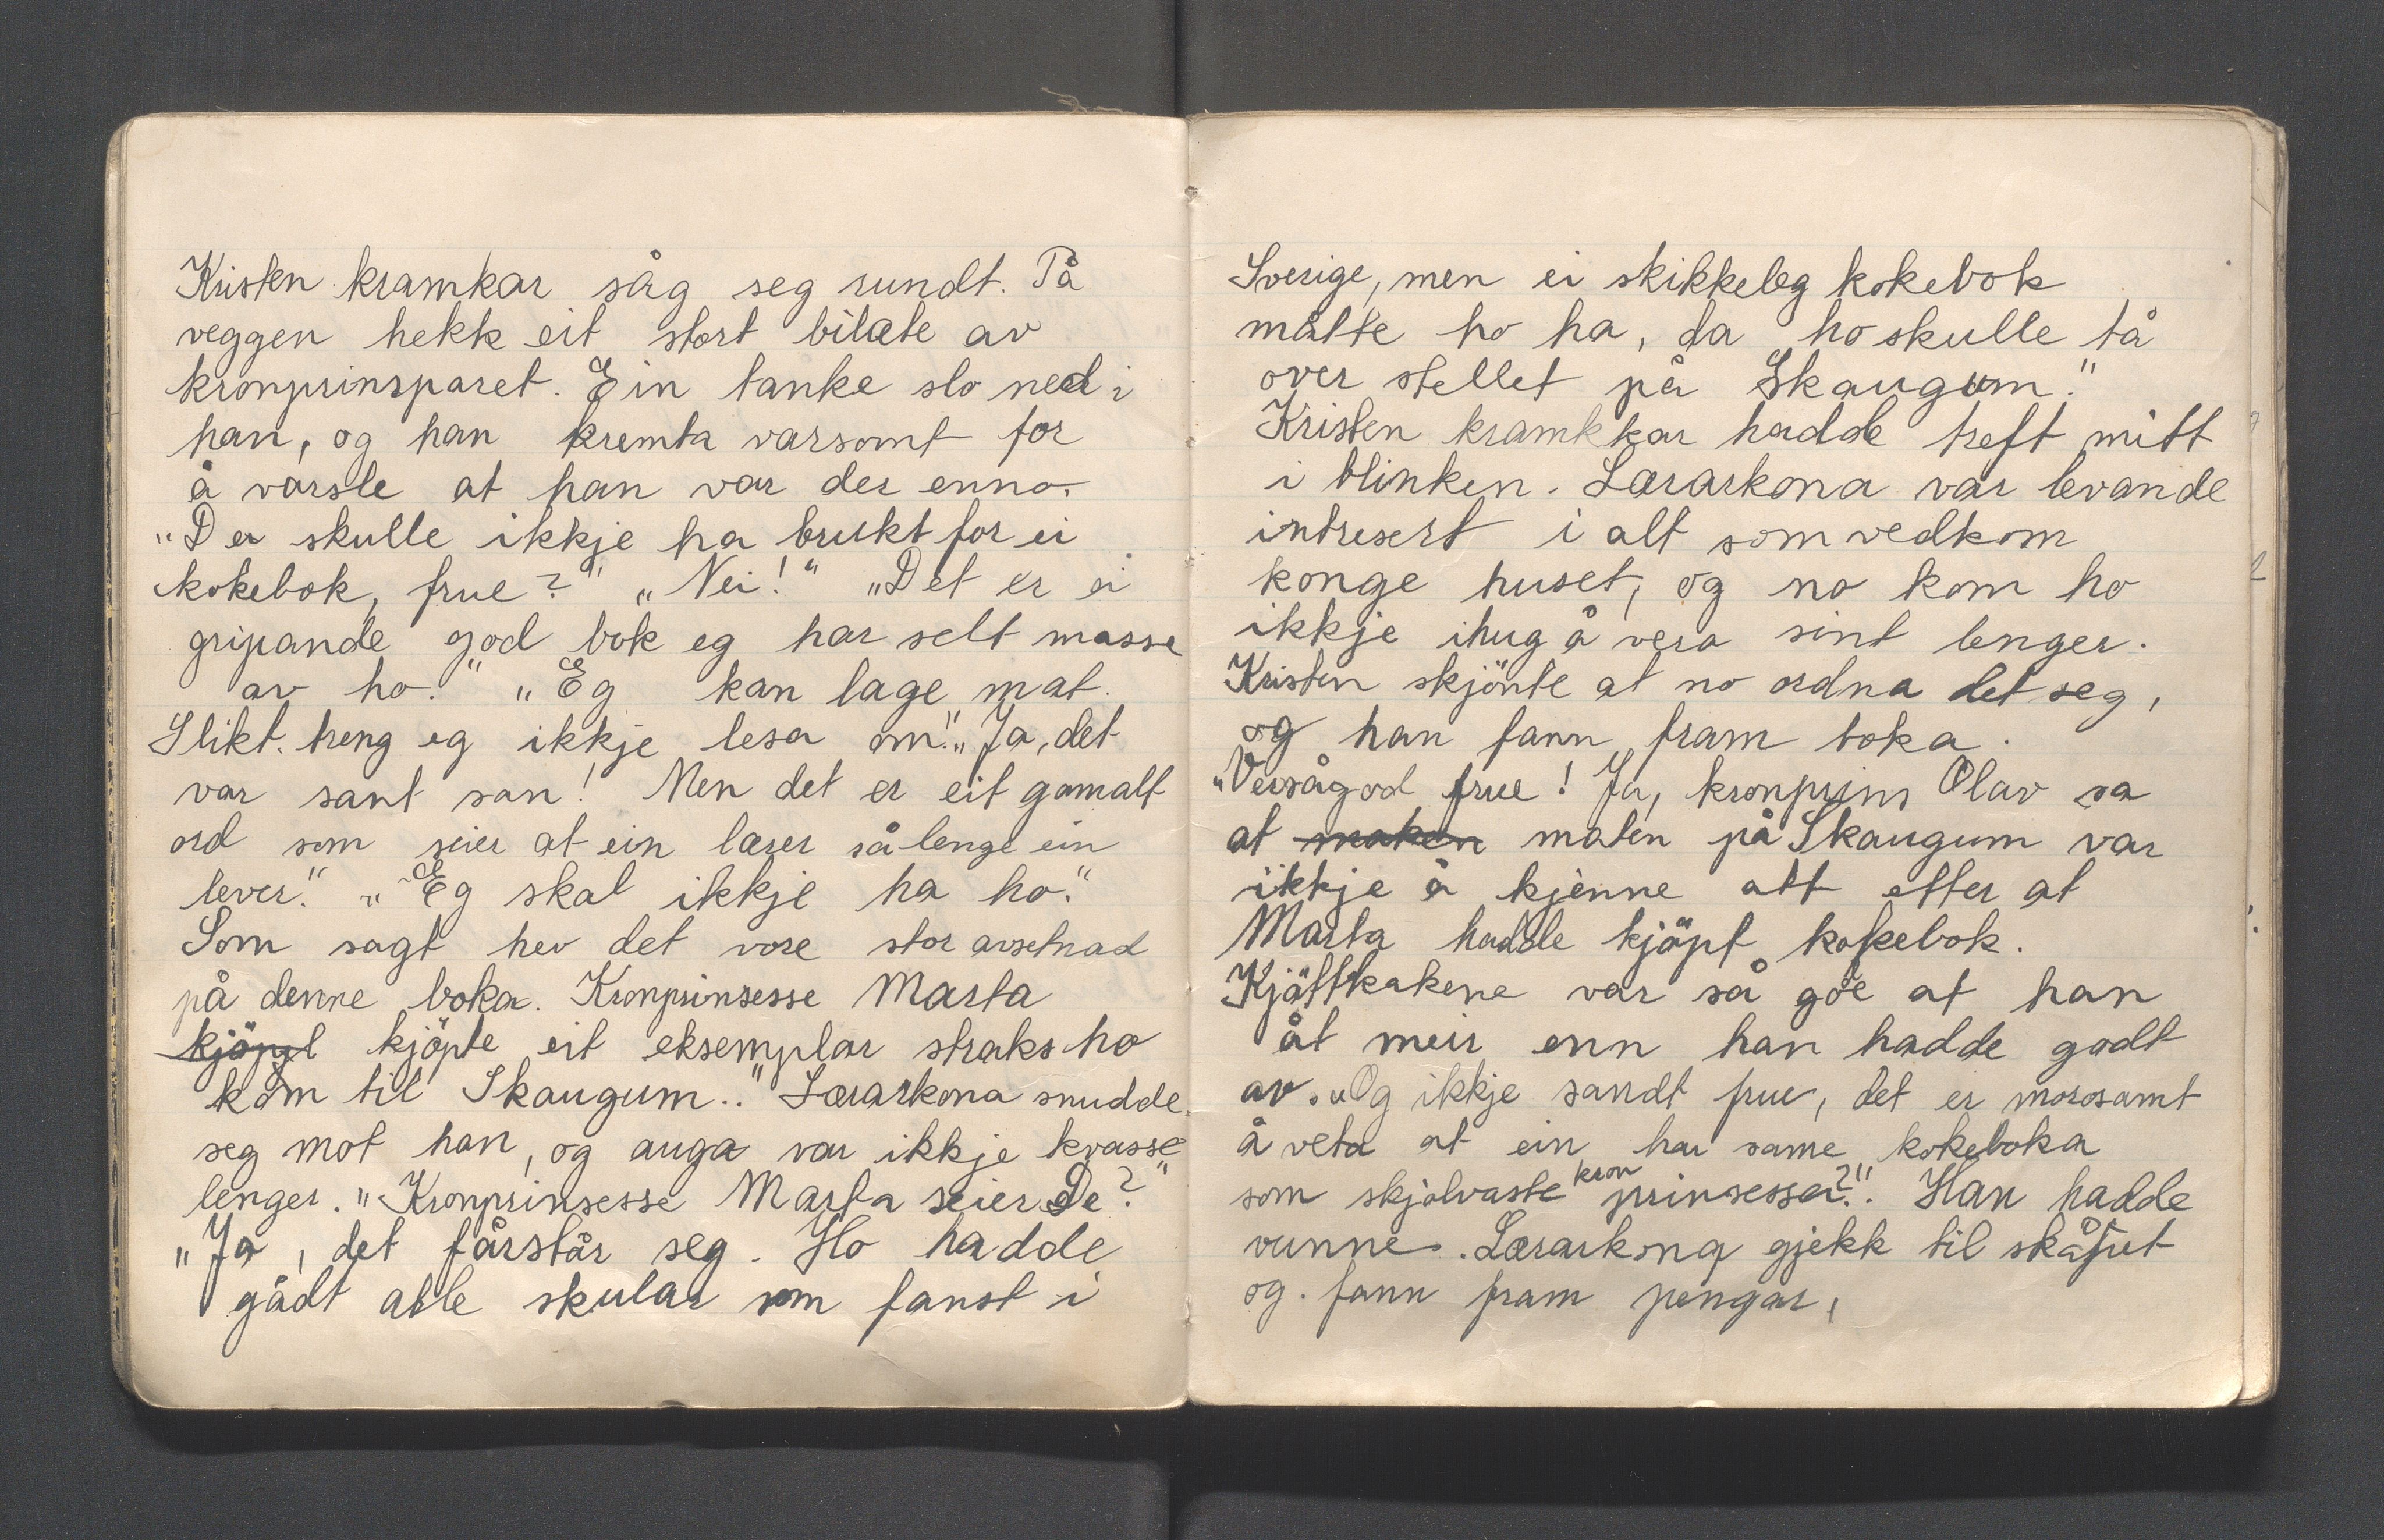 Kristen kramkar såg seg rundt. På
veggen hekk eit stort bilæte av
kronprinsparet. Ein tanke slo ned i
han, og han kremta varsomt for
å varsle at han var der enno.
"De skulle ikkje ha brukt for ei
kokebok, frue?" "Nei!" "Det er ei
gripande god bok eg har selt masse
av ho." "Eg kan lage mat.
Slikt treng eg ikkje lesa om." "Ja, det
var sant san! Men det er eit gamalt
ord som seier at ein lærer så lenge ein
lever." "Eg skal ikkje ha ho."
Som sagt hev det vore stor avsetnad
på denne boka. Kronprinsesse Marta
kjöpt kjöpte eit eksemplar straks ho
kom til Skaugum.." Lærarkona snudde
seg mot han, og auga var ikkje kvasse
lenger. "Kronprinsesse Marta seier De?"
"Ja, det fårstår seg. Ho hadde
gådt alle skular som fanst i
Sverige, men ei skikkeleg kokebok
måtte ho ha, da ho skulle tå
over stellet på Skaugum."
Kristen kramkkar hadde treft mitt
i blinken. Lærarkona var levande
intresert i alt som vedkom
konge huset, og no kom ho
ikkje ihug å vera sint lenger.
Kristen skjönte at no ordna det seg,
og han fann fram boka.
"Versågod frue! Ja, kronprins Olav sa
at maken maten på Skaugum var
ikkje å kjenne att etter at
Marta hadde kjöpt kokebok.
Kjöttkakene var så goe at han
åt meir enn han hadde godt
av. "Og ikkje sandt frue, det er morosamt
å veta at ein har same kokeboka
som skjølvaste kronprinsessa?". Han hadde
vunne. Lærarkona gjekk til skåpet
og fann fram pengar,